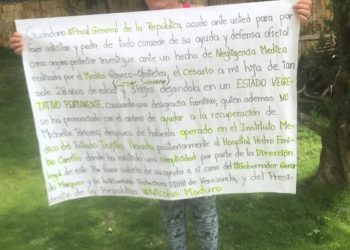 Ciudadano #Fiscal General de la República, acudo ante usted para por
favor solicitar y pedir de todo corazón de su ayuda y defensa oficial
como órgano protector investigue ante un hecho de Negligencia Medica
realizada por el Medico Gineco-Obstetra, el cesario a mi hija de tan
Cesar Serrano
solo 28 años de edad y 3 hijos dejandola en un ESTADO VEGE-
TATIVO PERMANENTE, causando una desgracia familiar, quien ademas NO
se ha pronunciado con el animo de ayudar a la recuperación de
Michelle después de haberla operado en el Instituto Me-
dico del Estado Trujillo, llevada posteriormente al Hospital Pedro Emi-
lio Carrillo donde ha existido una complicidad por parte de la Dirección
legal de este. Por favor solicito de su ayuda a si como del #Gobernador Gerar-
do Marquez y de la DDHH de Venezuela, y del Presi-
dente de la República #Nicolas Maduro